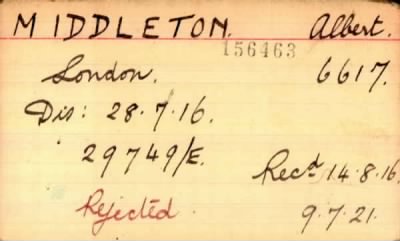 MIDDLETON. Albert.
156463
London. 6617.
Dis: 28.7.16.
29749/E. Recd 14.8.16.
Rejected. 9.7.21.